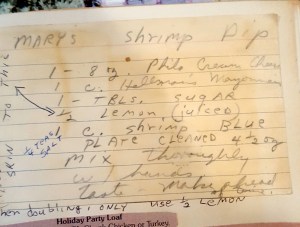 MARY'S Shrimp Dip
1 - 8 oz. Phila Cream Chees
1 c. Hellman's Mayonnaise
1 - TBLS. sugar
1/2 Lemon (juiced)
1 c. shrimp BLUE
PLATE CLEANED 4 1/2 oz
MIX thoroughly
w/ hands
Taste
THIS
TO
SKIN
1/4 TEAS SALT
when doubling, ONLY use 1/2 LEMON
Holiday Party Loaf
Chicken or Turkey.